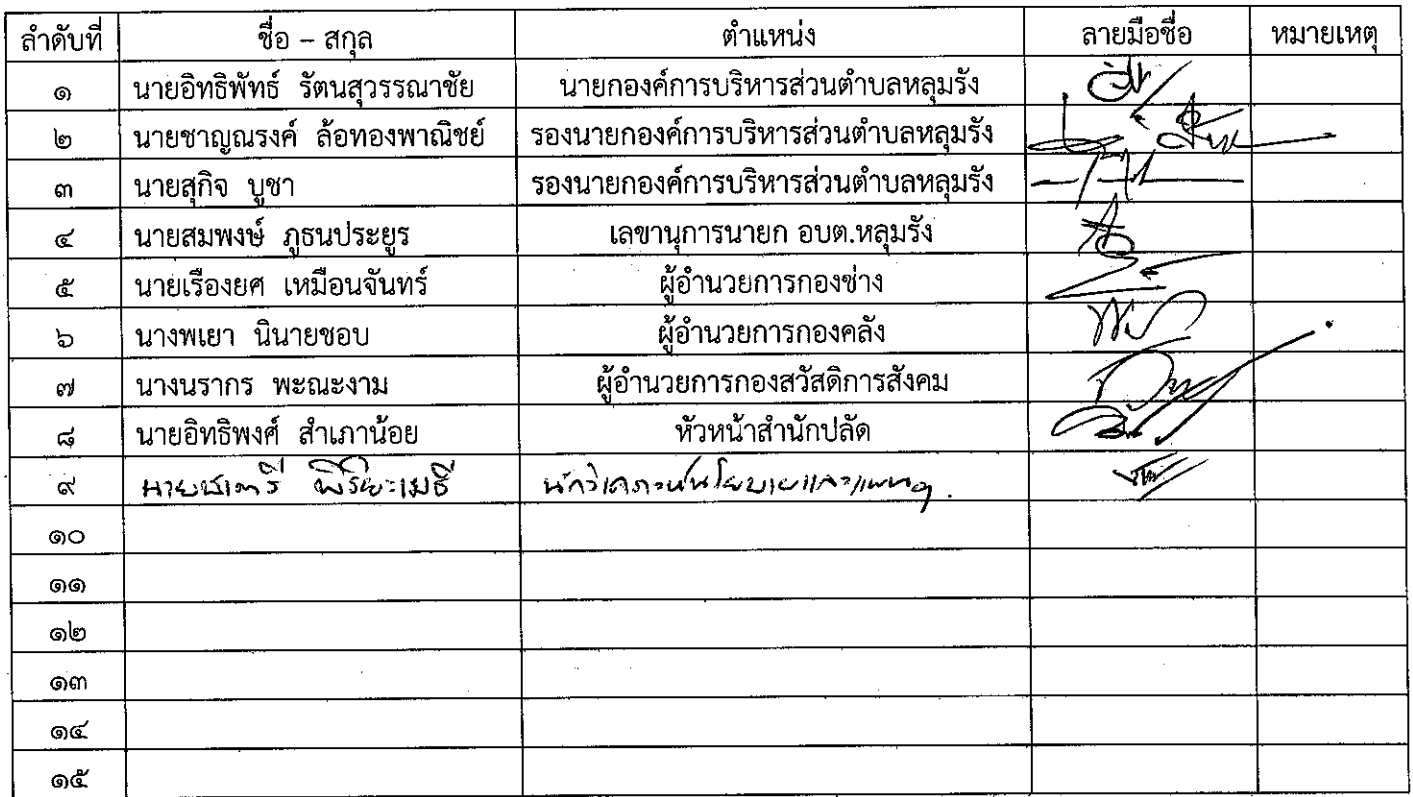 ลำดับที่ ชื่อ – สกุล ตำแหน่ง ลายมือชื่อ หมายเหตุ
๑ นายอิทธิพัทธ์ รัตนสุวรรณาชัย นายกองค์การบริหารส่วนตำบลหลุมรัง
๒ นายชาญณรงค์ ล้อทองพาณิชย์ รองนายกองค์การบริหารส่วนตำบลหลุมรัง
๓ นายสุกิจ บูชา รองนายกองค์การบริหารส่วนตำบลหลุมรัง
๔ นายสมพงษ์ ภูธนประยูร เลขานุการนายก อบต.หลุมรัง
๕ นายเรืองยศ เหมือนจันทร์ ผู้อำนวยการกองช่าง
๖ นางพเยา นินายชอบ ผู้อำนวยการกองคลัง
๗ นางนรากร พะณะงาม ผู้อำนวยการกองสวัสดิการสังคม
๘ นายอิทธิพงศ์ สำเภาน้อย หัวหน้าสำนักปลัด
๙ นักวิเคราะห์นโยบายและแผนฯ
๑๐
๑๑
๑๒
๑๓
๑๔
๑๕